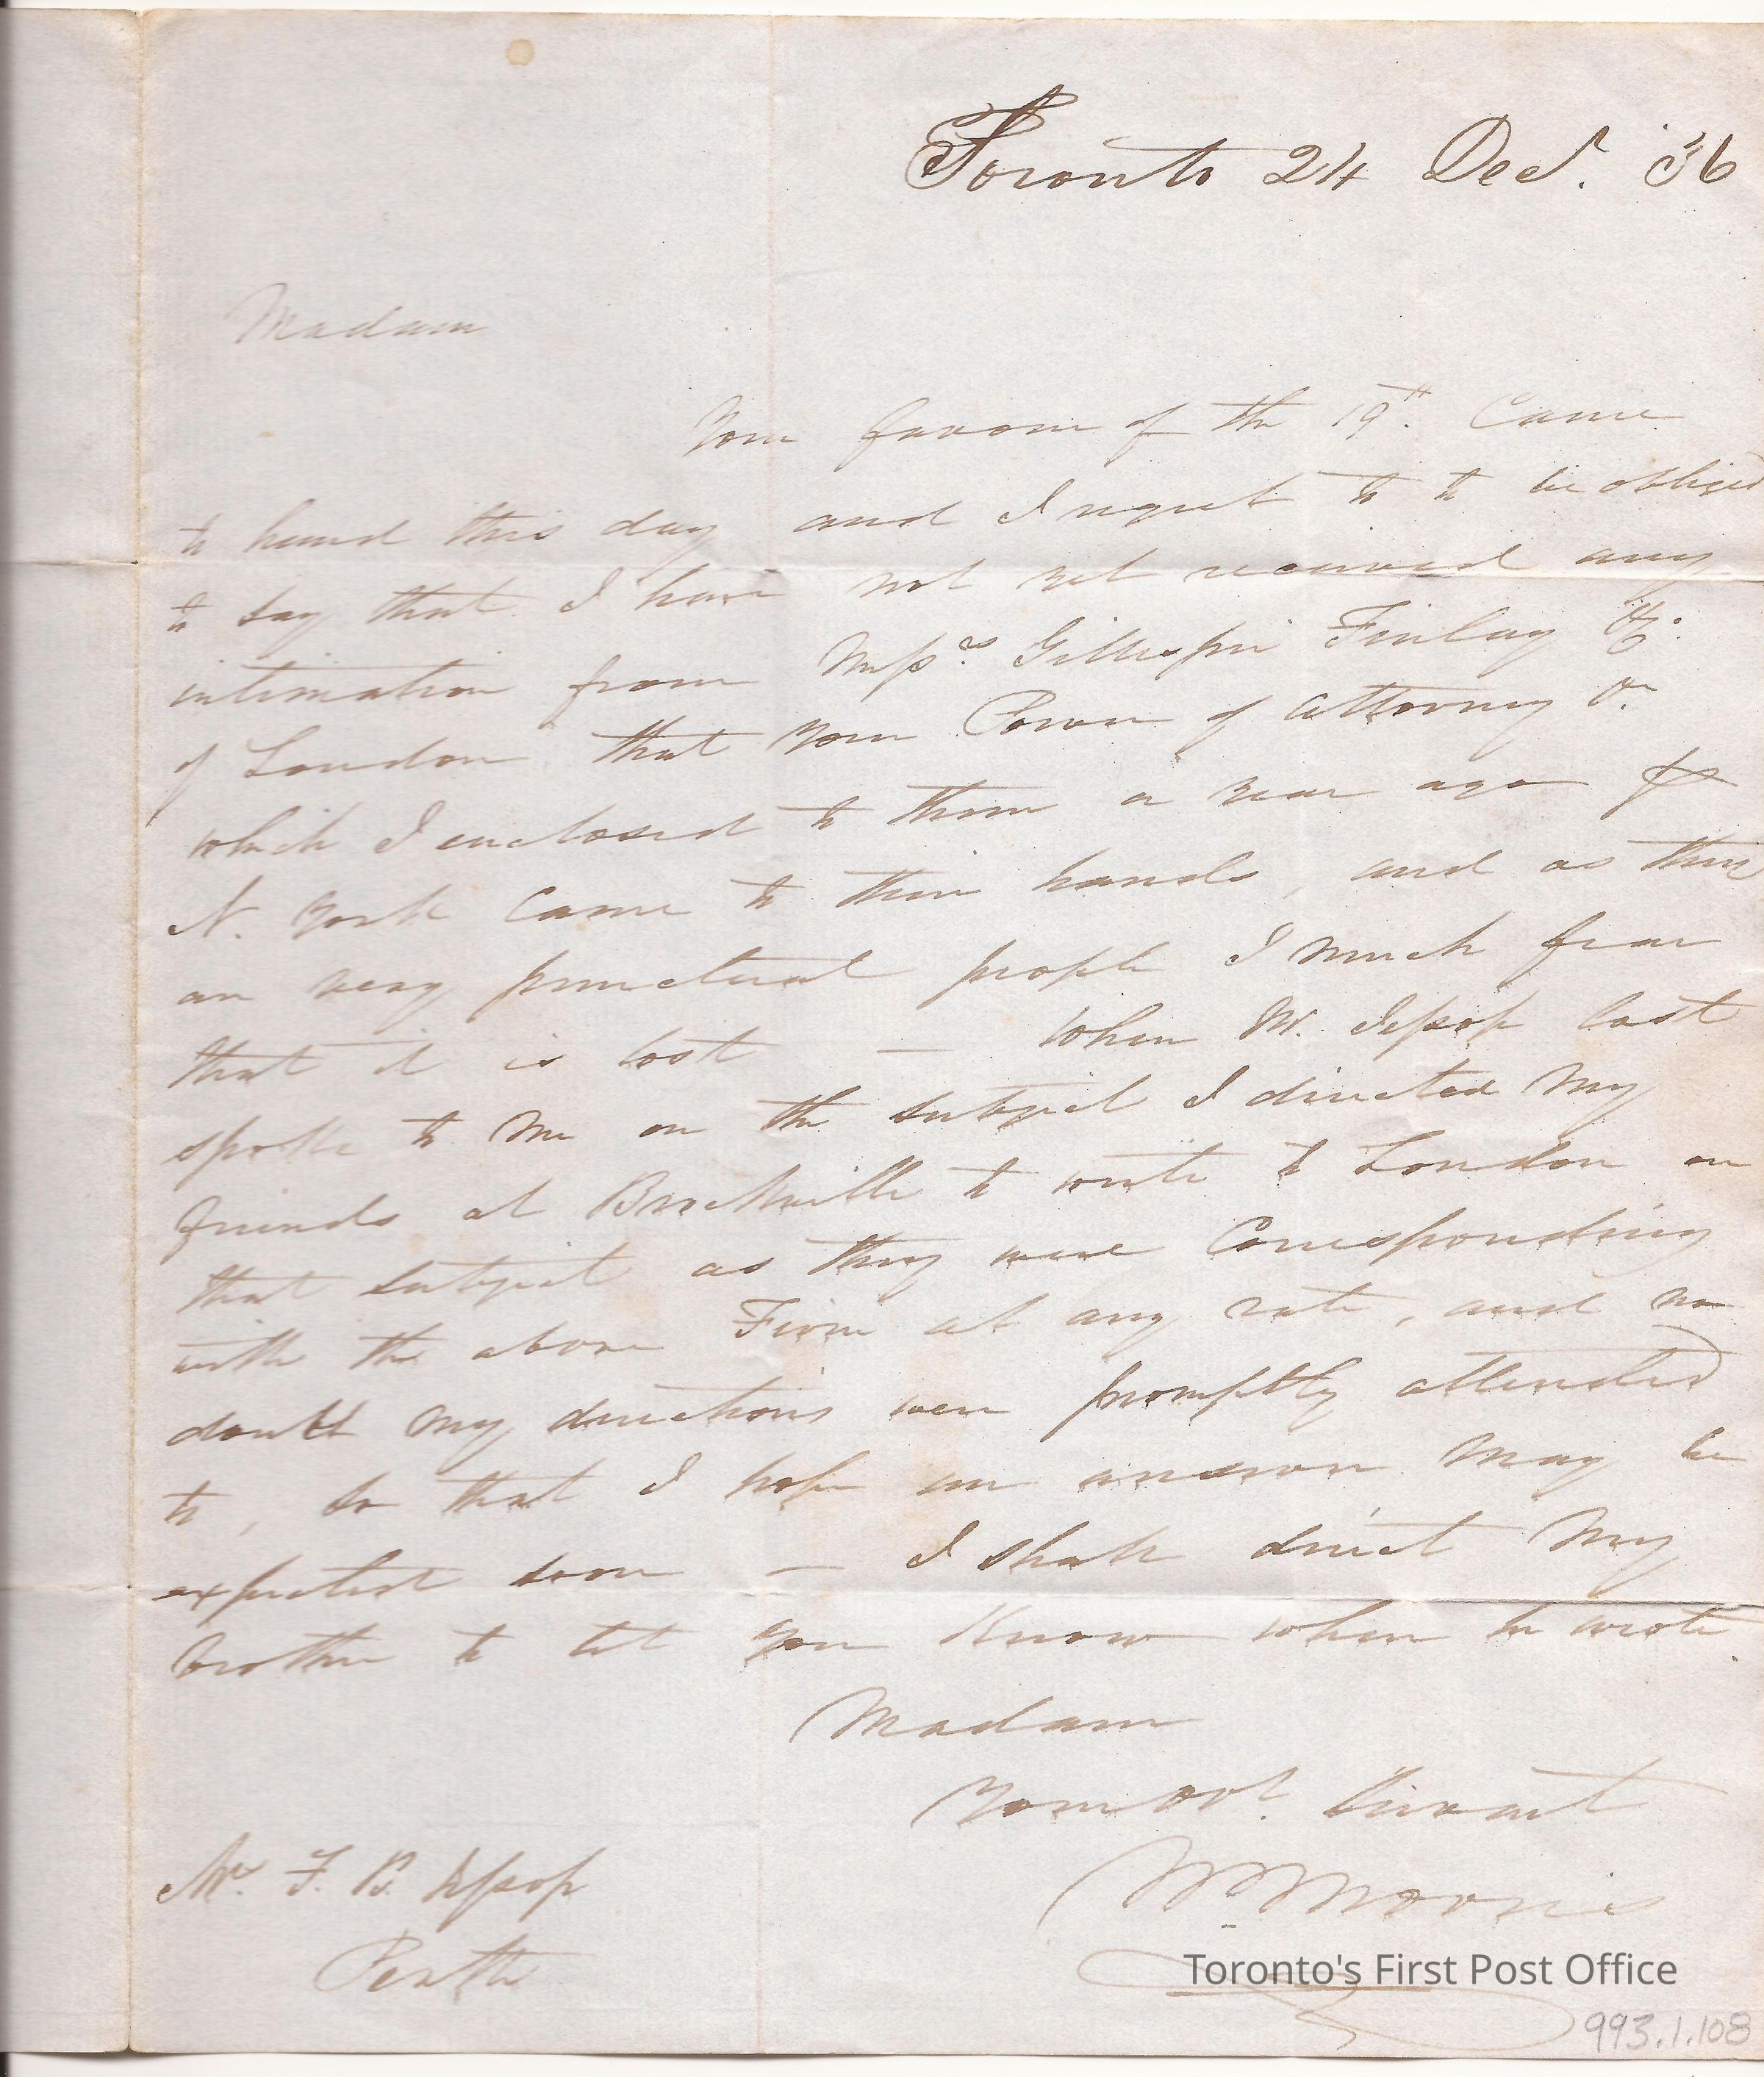 Toronto 24 Decr. 36
Madam
Your favour of the 19th. Came
to hand this day and I regret to to be obliged
to say that I have not yet received any
intimation from Messrs Gillespie Finlay & Co.
of London that your Power of attorney &c.
which I enclosed to them a year ago
N. York Came to their hands, and as they
are very punctual people I much fear
that it is lost — When Mr. Jessop last
spoke to me on the subject I directed My
friends at Brockville to write to London on
that subject as they were Corresponding
with the above Firm at any rate, and no
doubt My directions were promptly attended
to, so that I hope an answer May be
expected soon — I shall direct My
brother to let you Know when he wrote.
Madam
Your obt. Servant
Wm Morris
Mrs. F. B. Jessop
Perth
Toronto's First Post Office
993.1.108